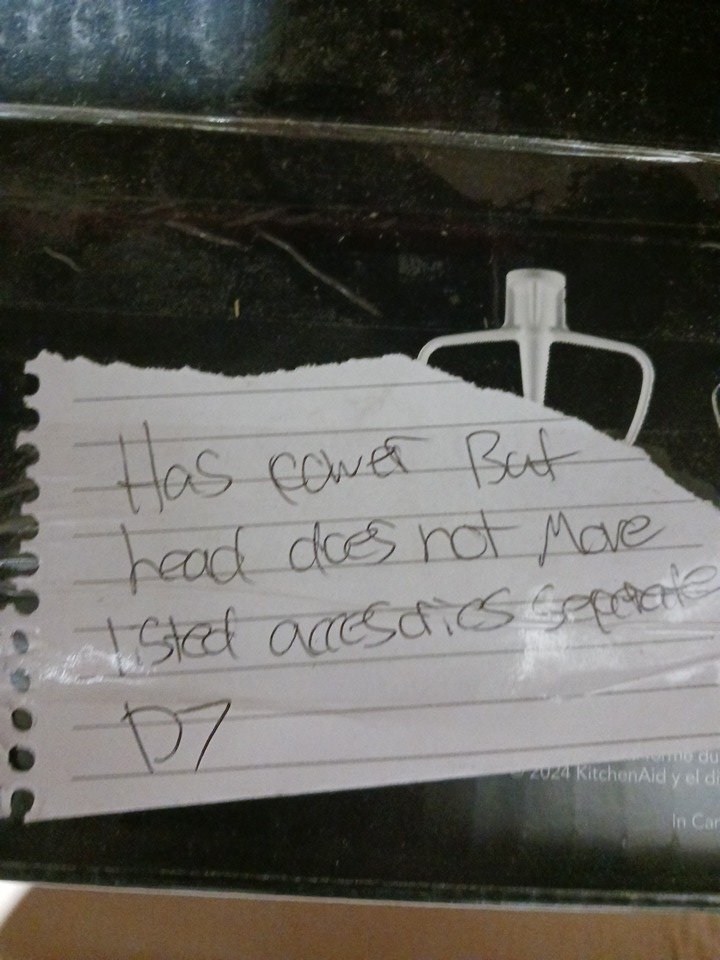 Has power But
head does not Move
listed accesories seperate
D7
© 2024 KitchenAid y el di
In Car